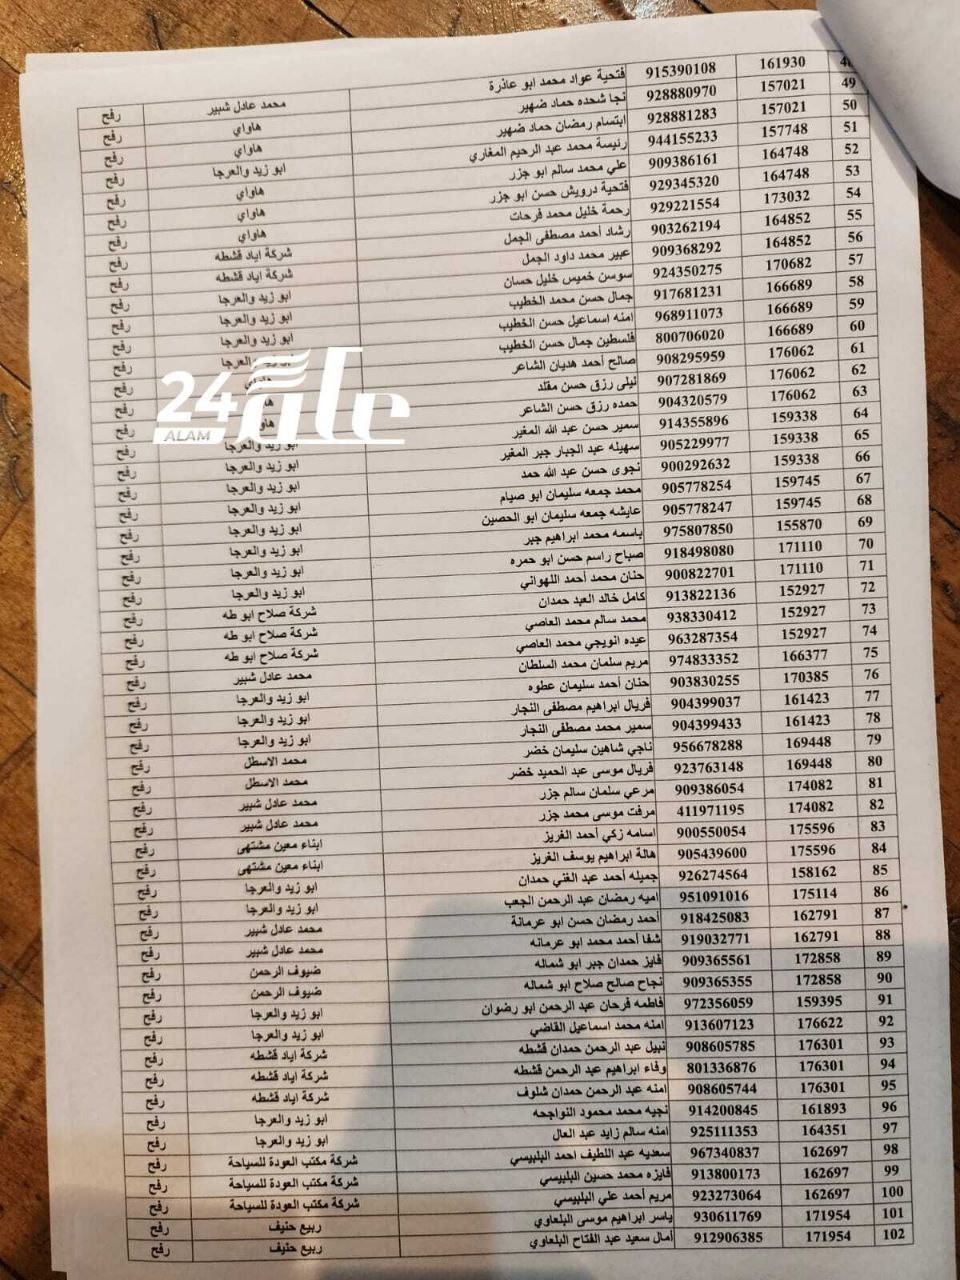 161930 915390108 فتحية عواد محمد ابو عاذرة محمد عادل شبير رفح
49 157021 928880970 نجا شحده حماد ضهير هاواي رفح
50 157021 928881283 ابتسام رمضان حماد ضهير هاواي رفح
51 157748 944155233 رئيسة محمد عبد الرحيم المغاري ابو زيد والعرجا رفح
52 164748 909386161 علي محمد سالم ابو جزر هاواي رفح
53 164748 929345320 فتحية درويش حسن ابو جزر هاواي رفح
54 173032 929221554 رحمة خليل محمد فرحات هاواي رفح
55 164852 903262194 رشاد أحمد مصطفى الجمل شركة اياد قشطه رفح
56 164852 909368292 عبير محمد داود الجمل شركة اياد قشطه رفح
57 170682 924350275 سوسن خميس خليل حسان ابو زيد والعرجا رفح
58 166689 917681231 جمال حسن محمد الخطيب ابو زيد والعرجا رفح
59 166689 968911073 امنه اسماعيل حسن الخطيب ابو زيد والعرجا رفح
60 166689 800706020 فلسطين جمال حسن الخطيب ابو زيد والعرجا رفح
61 176062 908295959 صالح أحمد هديان الشاعر هاواي رفح
62 176062 907281869 ليلى رزق حسن مقلد رفح
63 176062 904320579 حمده رزق حسن الشاعر رفح
عالم 24
ALAM
64 159338 914355896 سمير حسن عبد الله المغير ابو زيد والعرجا رفح
65 159338 905229977 سهيله عبد الجبار جبر المغير ابو زيد والعرجا رفح
66 159338 900292632 نجوى حسن عبد الله حمد ابو زيد والعرجا رفح
67 159745 905778254 محمد جمعه سليمان ابو صيام ابو زيد والعرجا رفح
68 159745 905778247 عايشه جمعه سليمان ابو الحصين ابو زيد والعرجا رفح
69 155870 975807850 باسمه محمد ابراهيم جبر ابو زيد والعرجا رفح
70 171110 918498080 صباح راسم حسن ابو حمره ابو زيد والعرجا رفح
71 171110 900822701 حنان محمد أحمد اللهواني ابو زيد والعرجا رفح
72 152927 913822136 كامل خالد العبد حمدان شركة صلاح ابو طه رفح
73 152927 938330412 محمد سالم محمد العاصي شركة صلاح ابو طه رفح
74 152927 963287354 عيده النويجي محمد العاصي شركة صلاح ابو طه رفح
75 166377 974833352 مريم سلمان محمد السلطان محمد عادل شبير رفح
76 170385 903830255 حنان أحمد سليمان عطوه ابو زيد والعرجا رفح
77 161423 904399037 فريال ابراهيم مصطفى النجار ابو زيد والعرجا رفح
78 161423 904399433 سمير محمد مصطفى النجار ابو زيد والعرجا رفح
79 169448 956678288 ناجي شاهين سليمان خضر محمد الاسطل رفح
80 169448 923763148 فريال موسى عبد الحميد خضر محمد الاسطل رفح
81 174082 909386054 مرعي سلمان سالم جزر محمد عادل شبير رفح
82 174082 411971195 مرفت موسى محمد جزر محمد عادل شبير رفح
83 175596 900550054 اسامه زكي أحمد الغريز ابناء معين مشتهى رفح
84 175596 905439600 هالة ابراهيم يوسف الغريز ابناء معين مشتهى رفح
85 158162 926274564 جميله أحمد عبد الغني حمدان ابو زيد والعرجا رفح
86 175114 951091016 اميه رمضان عبد الرحمن الجعب ابو زيد والعرجا رفح
87 162791 918425083 أحمد رمضان حسن ابو عرمانة محمد عادل شبير رفح
88 162791 919032771 شفا أحمد محمد ابو عرمانه محمد عادل شبير رفح
89 172858 909365561 فايز حمدان جبر ابو شماله ضيوف الرحمن رفح
90 172858 909365355 نجاح صالح صلاح ابو شماله ضيوف الرحمن رفح
91 159395 972356059 فاطمه فرحان عبد الرحمن ابو رضوان ابو زيد والعرجا رفح
92 176622 913607123 امنه محمد اسماعيل القاضي ابو زيد والعرجا رفح
93 176301 908605785 نبيل عبد الرحمن حمدان قشطه شركة اياد قشطه رفح
94 176301 801336876 وفاء ابراهيم عبد الرحمن قشطه شركة اياد قشطه رفح
95 176301 908605744 امنه عبد الرحمن حمدان شلوف شركة اياد قشطه رفح
96 161893 914200845 نجيه محمد محمود النواجحه ابو زيد والعرجا رفح
97 164351 925111353 امنه سالم زايد عبد العال ابو زيد والعرجا رفح
98 162697 967340837 سعديه عبد اللطيف احمد البلبيسي شركة مكتب العودة للسياحة رفح
99 162697 913800173 فايزه محمد حسين البلبيسي شركة مكتب العودة للسياحة رفح
100 162697 923273064 مريم أحمد علي البلبيسي شركة مكتب العودة للسياحة رفح
101 171954 930611769 ياسر ابراهيم موسى البلعاوي ربيع حنيف رفح
102 171954 912906385 أمال سعيد عبد الفتاح البلعاوي ربيع حنيف رفح